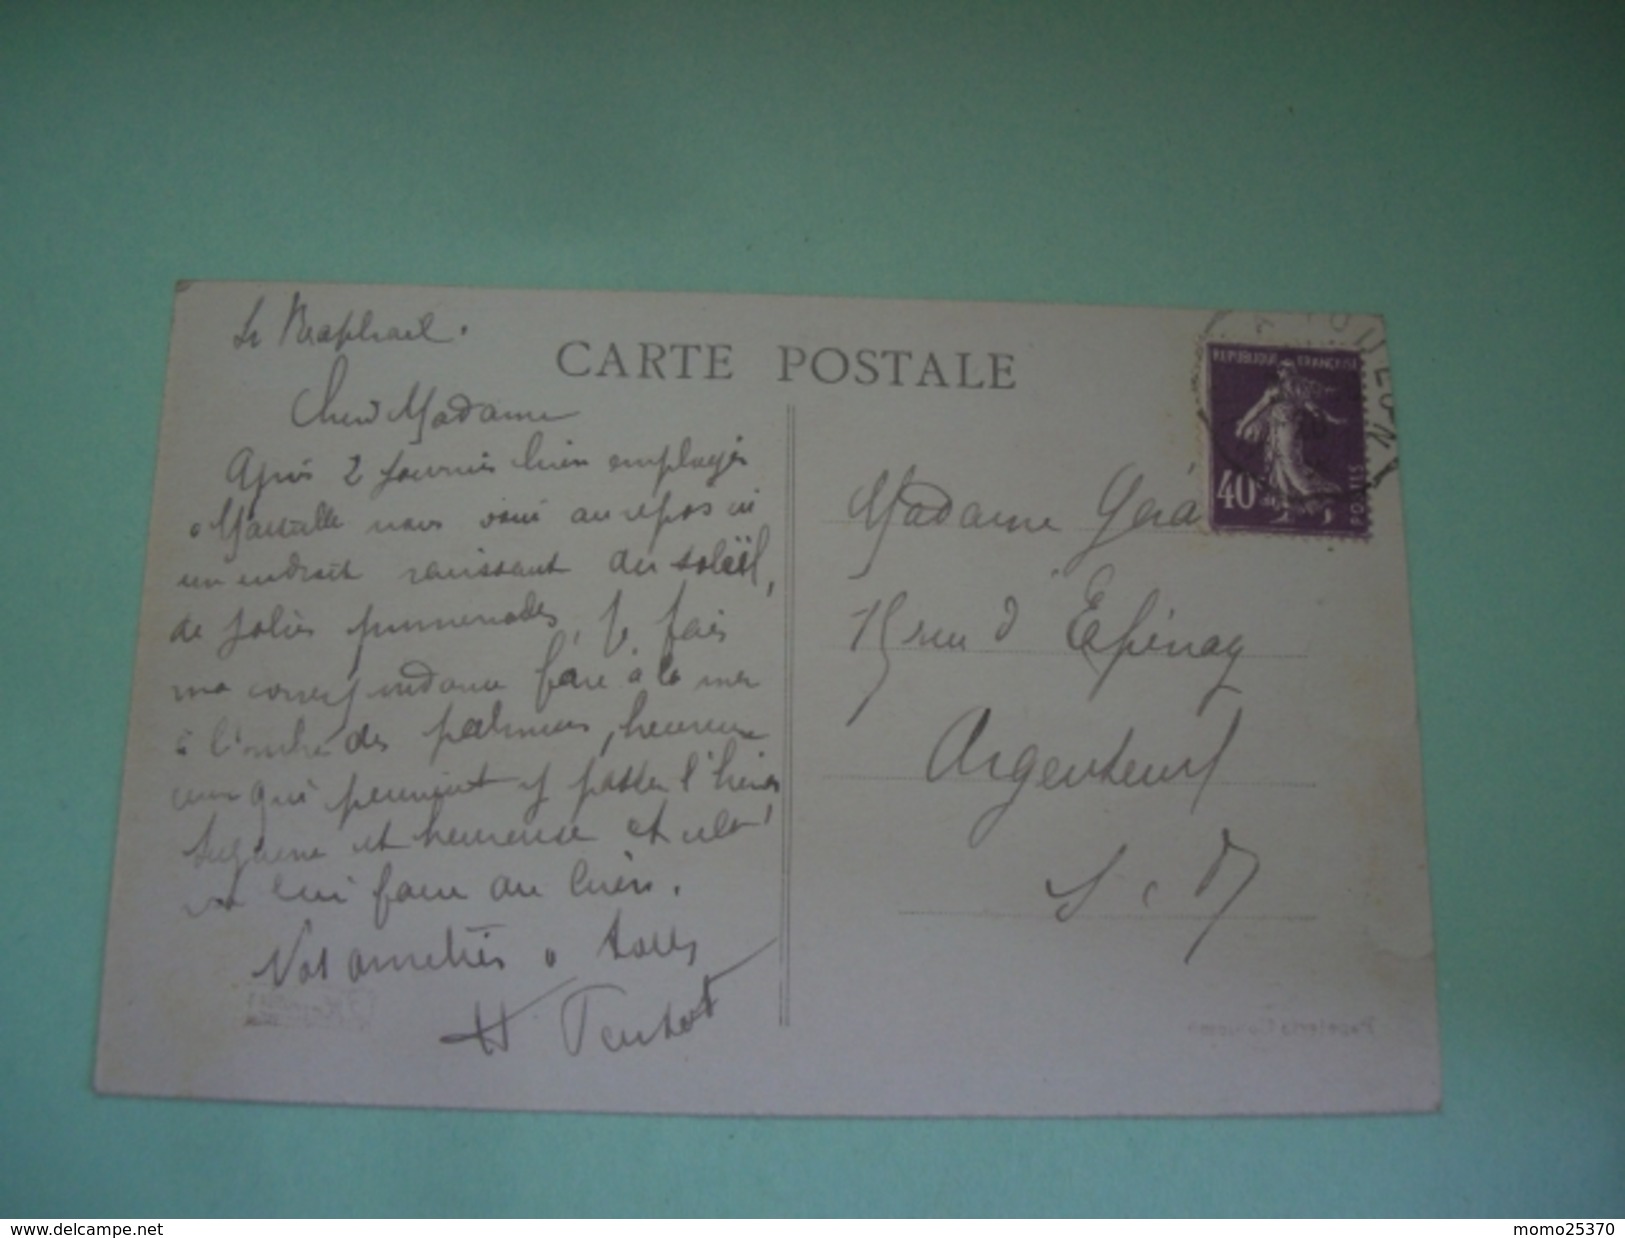 St Raphael.
CARTE POSTALE
Chère Madame
Après 2 journées bien employées
à Marseille nous voici au repos ici
un endroit ravissant du soleil,
de jolies promenades, je fais
ma correspondance face à la mer
à l'ombre des palmiers, heureux
ceux qui peuvent y passer l'hiver
et heureuse et cela
va lui faire du bien.
Nos amitiés à tous
H
REPUBLIQUE FRANÇAISE
40
POSTES
Madame Géra
15 rue d'Epinay
Argenteuil
S. O
www.delcampe.net
momo25370